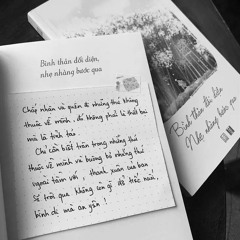 Bình thản đối diện,
nhẹ nhàng bước qua
Chấp nhận và quên đi những thứ không
thuộc về mình, đó không phải là thất bại
mà là tỉnh táo.
Chỉ cần biết trân trọng những thứ
thuộc về mình và buông bỏ những thứ
ngoài tầm với, thanh xuân của bạn
sẽ trôi qua không còn gì để tiếc nuối,
bình dị mà an yên!
Bình thản đối diện
Nhẹ nhàng bước qua